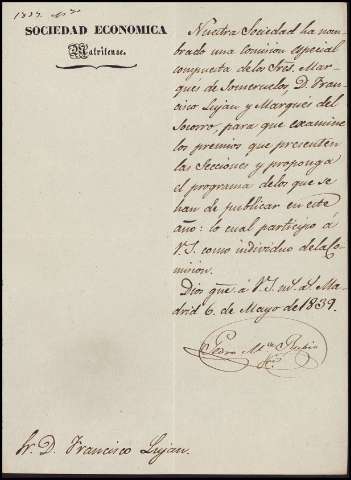 1839
SOCIEDAD ECONOMICA
Matritense.
Nuestra Sociedad ha nom-
brado una comision especial
compuesta de los Sres. Mar-
qués de Someruelos, D. Fran-
cisco Luján y Marqués del
Socorro, para que examine
los premios que presenten
las Secciones y proponga
el programa de los que se
han de publicar en este
año: lo cual participo á
V.S. como individuo de la Co-
mision.
Dios gue. á V.S. ms. as. Ma-
drid 6. de Mayo de 1839.
Pedro Ma. Rubio
Sr. D. Francisco Luján.